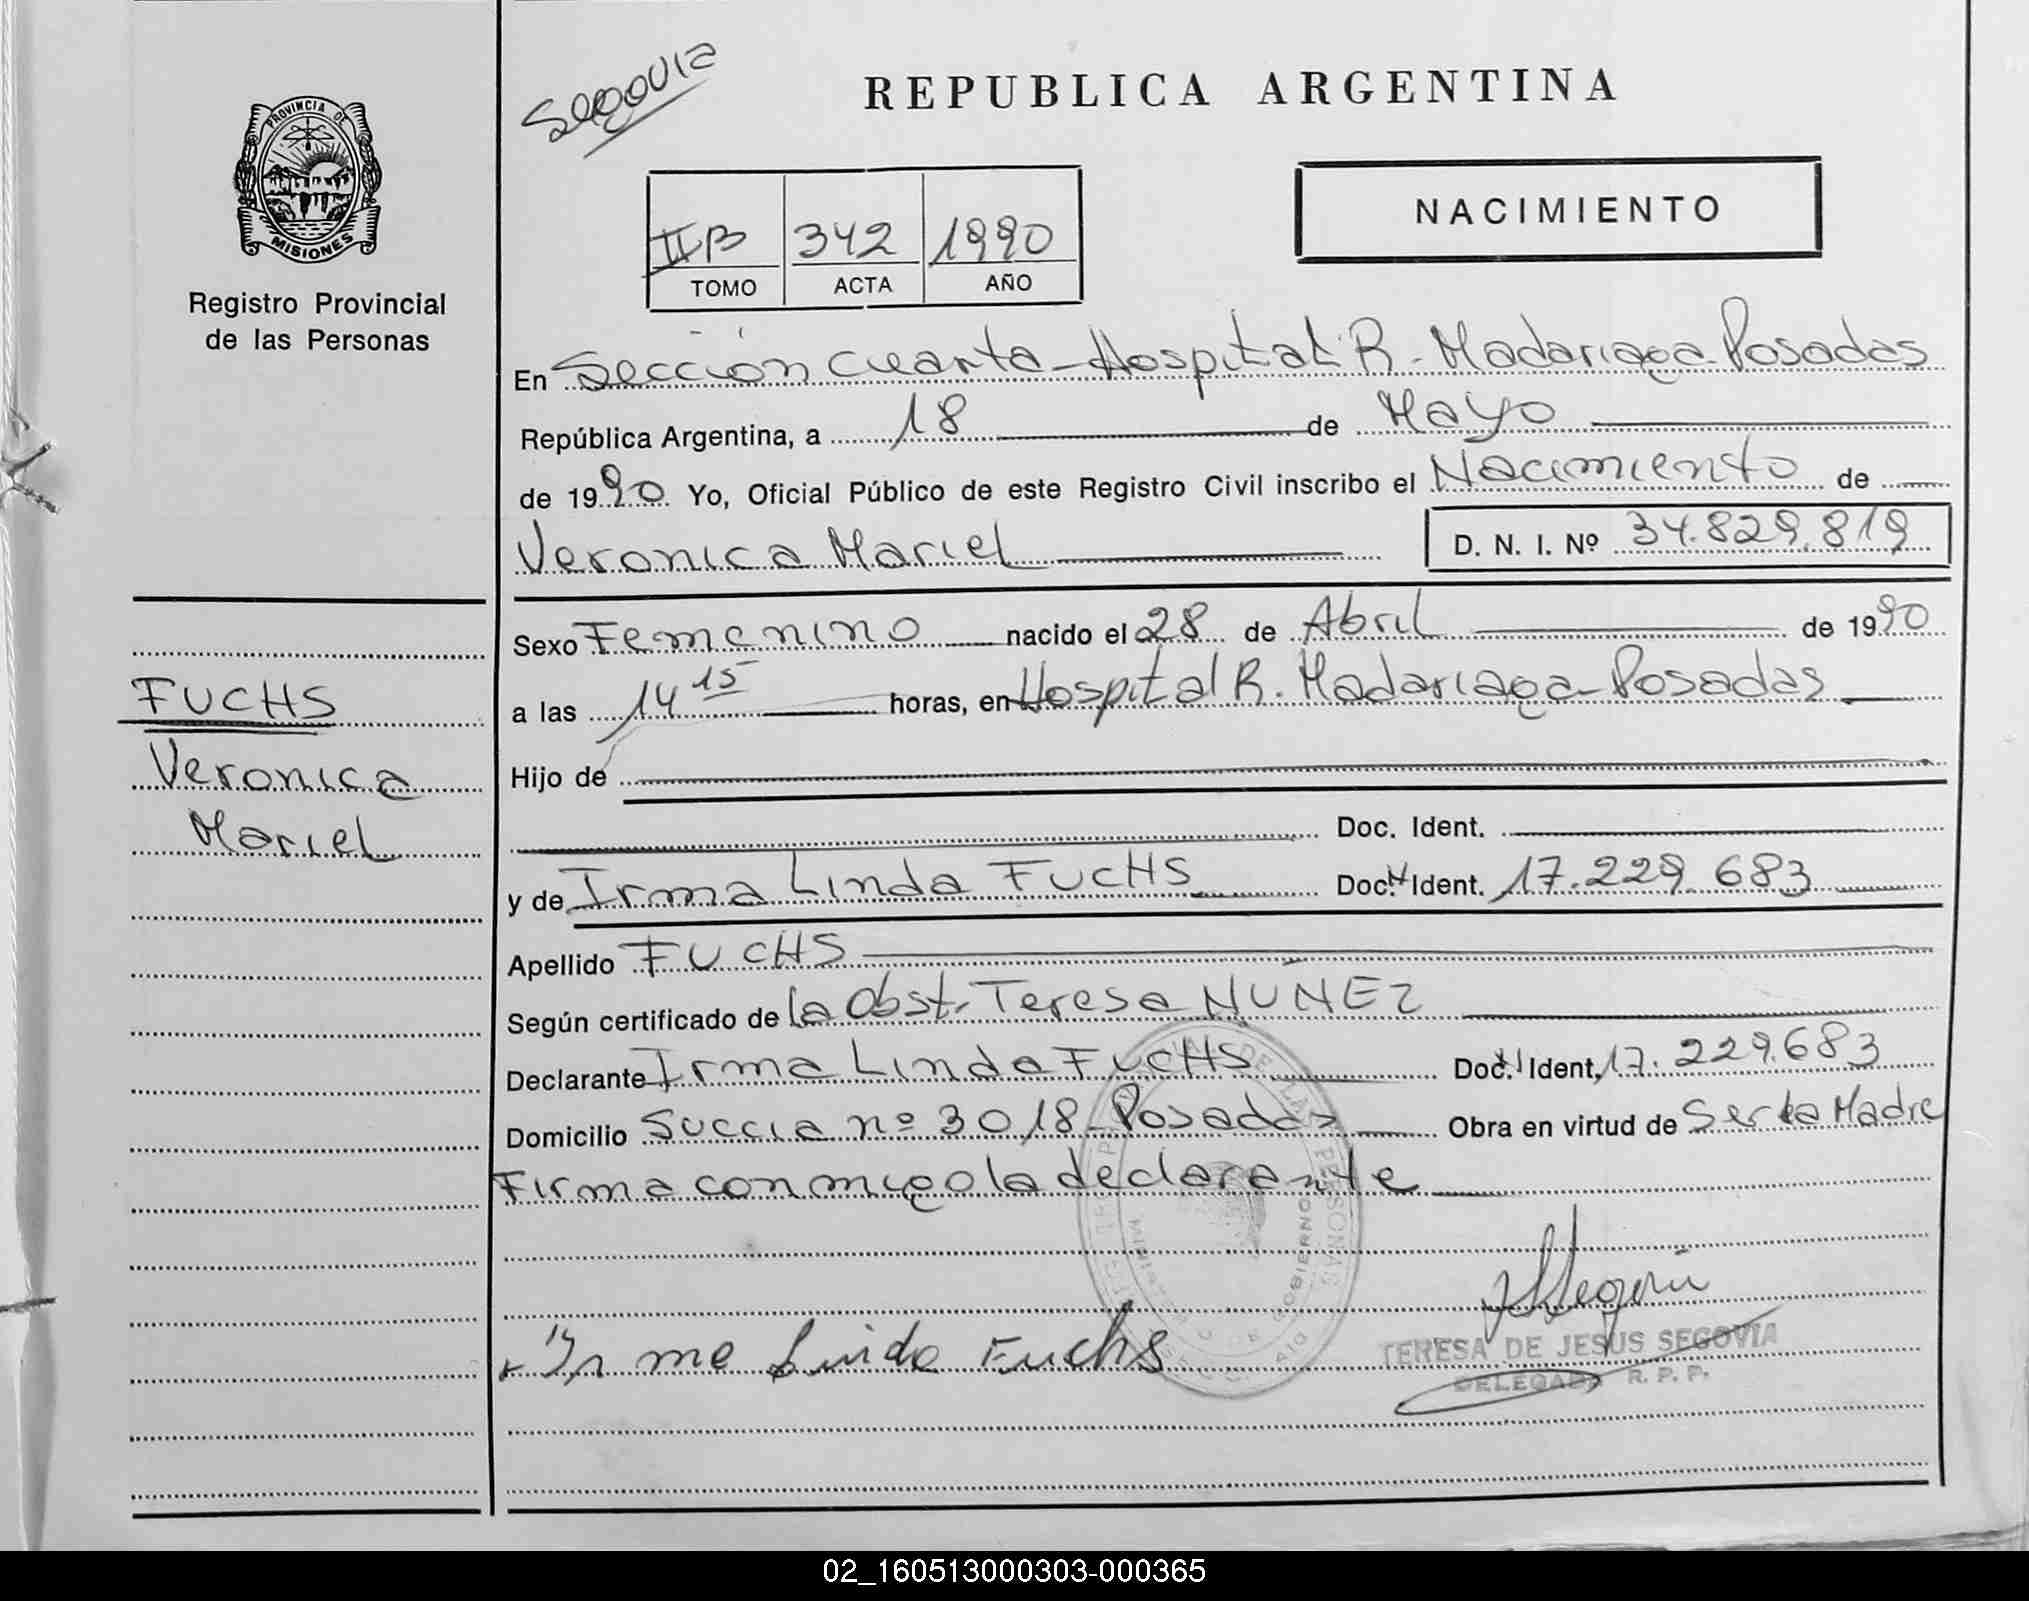 PROVINCIA DE
MISIONES
Registro Provincial
de las Personas
FUCHS
Veronica
Mariel
Segovia
REPUBLICA ARGENTINA
NACIMIENTO
IIB 342 1990
TOMO ACTA AÑO
En Sección Cuarta - Hospital R. Madariaga - Posadas
República Argentina, a 18 de Mayo
de 1990. Yo, Oficial Público de este Registro Civil inscribo el Nacimiento de
Veronica Mariel D. N. I. Nº 34.829.819
Sexo Femenino nacido el 28 de Abril de 1990
a las 14 15 horas, en Hospital R. Madariaga - Posadas
Hijo de
Doc. Ident.
y de Irma Linda FUCHS Doc. Ident. 17.229.683
Apellido FUCHS
Según certificado de la Obst. Teresa NÚÑEZ
Declarante Irma Linda FUCHS Doc. Ident. 17.229.683
Domicilio Succia nº 3018 - Posadas Obra en virtud de Ser la Madre
Firma conmigo la declarante
Irma Linda Fuchs
TERESA DE JESUS SEGOVIA
DELEGADA R. P. P.
02_160513000303-000365